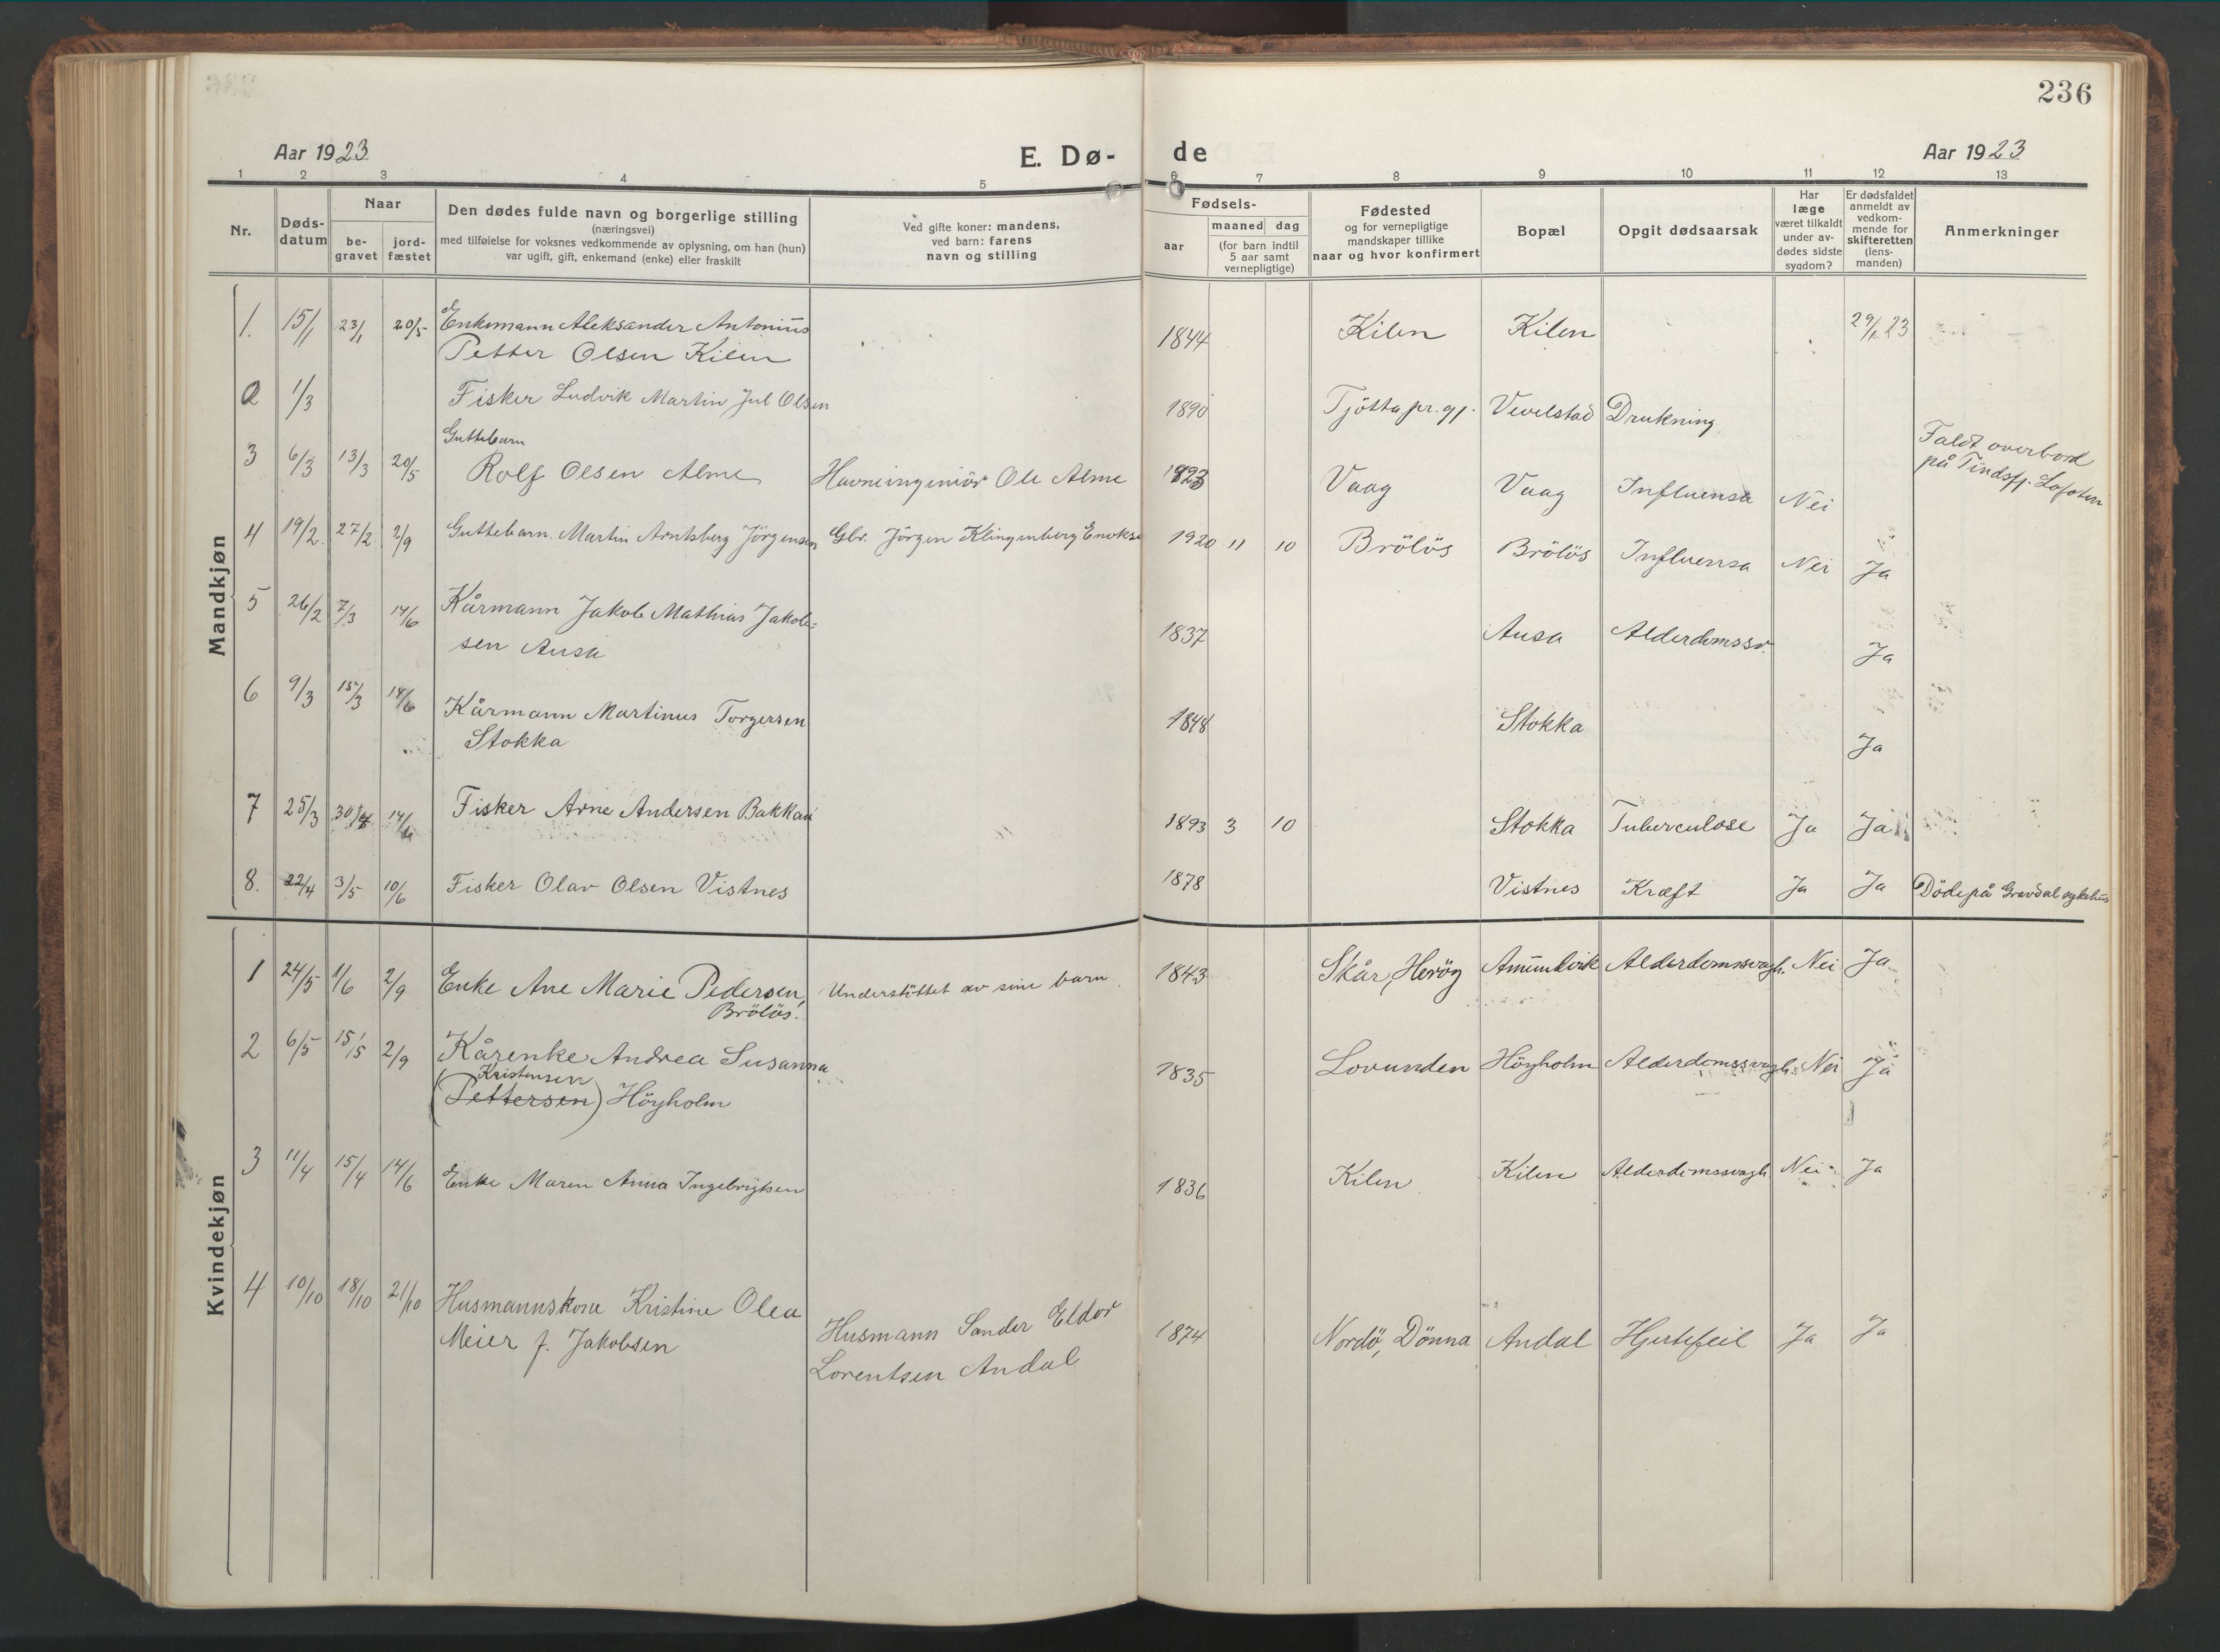 236
Aar 1923
E. Dø-
de
Aar 1923
1 2 3 4 5 6 7 8 9 10 11 12 13
Nr.
Døds-
datum
Naar
be-
gravet
jord-
fæstet
Den dødes fulde navn og borgerlige stilling
(næringsvei)
med tilføielse for voksnes vedkommende av oplysning, om han (hun)
var ugift, gift, enkemand (enke) eller fraskilt
Ved gifte koner: mandens,
ved barn: farens
navn og stilling
Fødsels-
aar
maaned dag
(for barn indtil
5 aar samt
vernepligtige)
Fødested
og for vernepligtige
mandskaper tillike
naar og hvor konfirmert
Bopæl
Opgit dødsaarsak
Har
læge
været tilkaldt
under av-
dødes sidste
sygdom?
Er dødsfaldet
anmeldt av
vedkom-
mende for
skifteretten
(lens-
manden)
Anmerkninger
Mandkjøn
1. 15/1 23/1 20/5 Enkemann Aleksander Antonius 1844 Kilen Kilen 29/1 23
Petter Olsen Kilen
2 1/3 Fisker Ludvik Martin Jul Olsen 1890 Tjötta pr.gj. Vevelstad Drukning
Faldt overbord
på Tindsfj. Lofoten
Guttebarn
3 6/3 13/3 20/5 Rolf Olsen Alme Havneingeniör Ole Alme 1923 Vaag Vaag Influensa Nei
4 19/2 27/2 2/9 Guttebarn Martin Arntsberg Jörgensen Gbr. Jörgen Klingenberg Enokse 1920 11 10 Brölös Brölös Influensa Nei Ja
5 26/2 7/3 14/6 Kårmann Jakob Mathias Jakob-
sen Ausa 1837 Ausa Alderdomssv. Ja
6 9/3 15/3 14/6 Kårmann Martinus Torgersen
Stokka 1848 Stokka Ja
7 25/3 30/4 14/6 Fisker Arne Andersen Bakkan 1893 3 10 Stokka Tuberculose Ja Ja
8. 22/4 3/5 10/6 Fisker Olav Olsen Vistnes 1878 Vistnes Kræft Ja Ja Döde på Gravdal sykehus
Kvindekjøn
1 24/5 1/6 2/9 Enke Ane Marie Pedersen, Understöttet av sine barn. 1843 Skår, Heröy Alderdomssvagh. Nei Ja
Brölös.
2 6/5 15/5 2/9 Kårenke Andrea Susanna 1835 Lovunden Höyholm Alderdomssvagh. Nei Ja
Kristensen
(Pettersen) Höyholm
3 11/4 15/4 14/6 Enke Maren Anna Ingebrigtsen 1836 Kilen Kilen Alderdomssvagh. Nei Ja
4 10/10 18/10 21/10 Husmannskone Kristine Olea
Meier f. Jakobsen Husmann Sander Eldor 1874 Nordö, Dönna Andal Hjertefeil Ja Ja
Lorentsen Andal